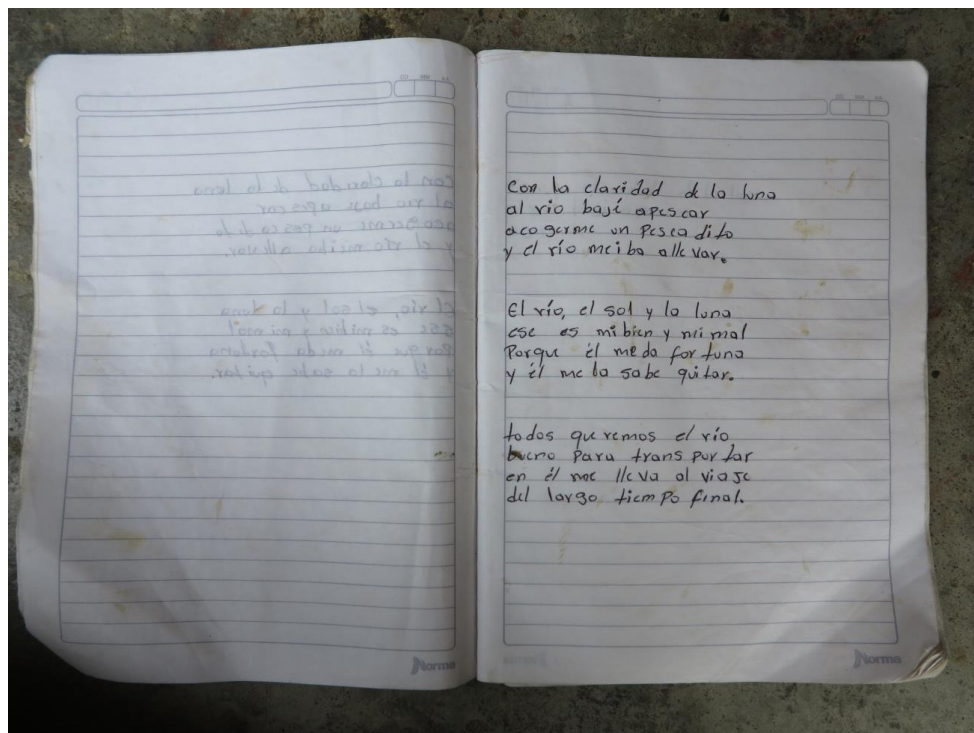 Con la claridad de la luna
al rio bají apescar
acogerme un Pescadito
y el río meiba allevar.
El río, el sol y la luna
ese es mibien y mimal
Porque él meda fortuna
y él me la sabe quitar.
todos queremos el río
bueno Para transportar
en él me lleva al viaje
del largo tiempo final.
Norma
Norma